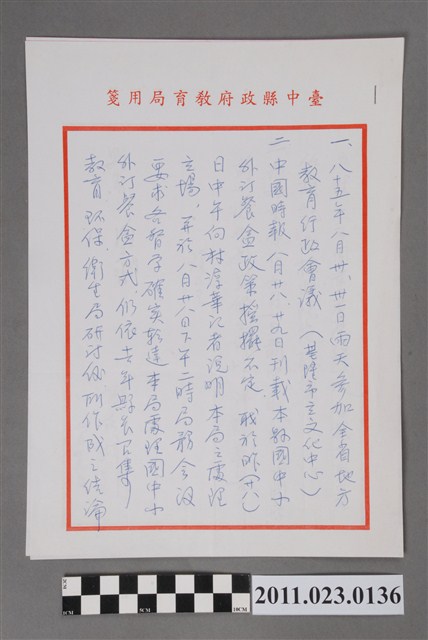 臺中縣政府教育局用箋
一、八十五年八月卅、卅一日兩天參加全省地方
教育行政會議(基隆市立文化中心)
二、中國時報八月廿八、廿九日刊載本縣國中小
外訂餐盒政策搖擺不定,職於昨(廿八)
日中午向林淳華記者說明本局之處理
立場,并於八月廿八日下午二時局務會議
要求各督學確實轉達本局處理國中小
外訂餐盒方式,仍依去年縣長召集
教育、環保、衛生局研討後,所作成之結論
1CM
5CM
10CM
2011.023.0136